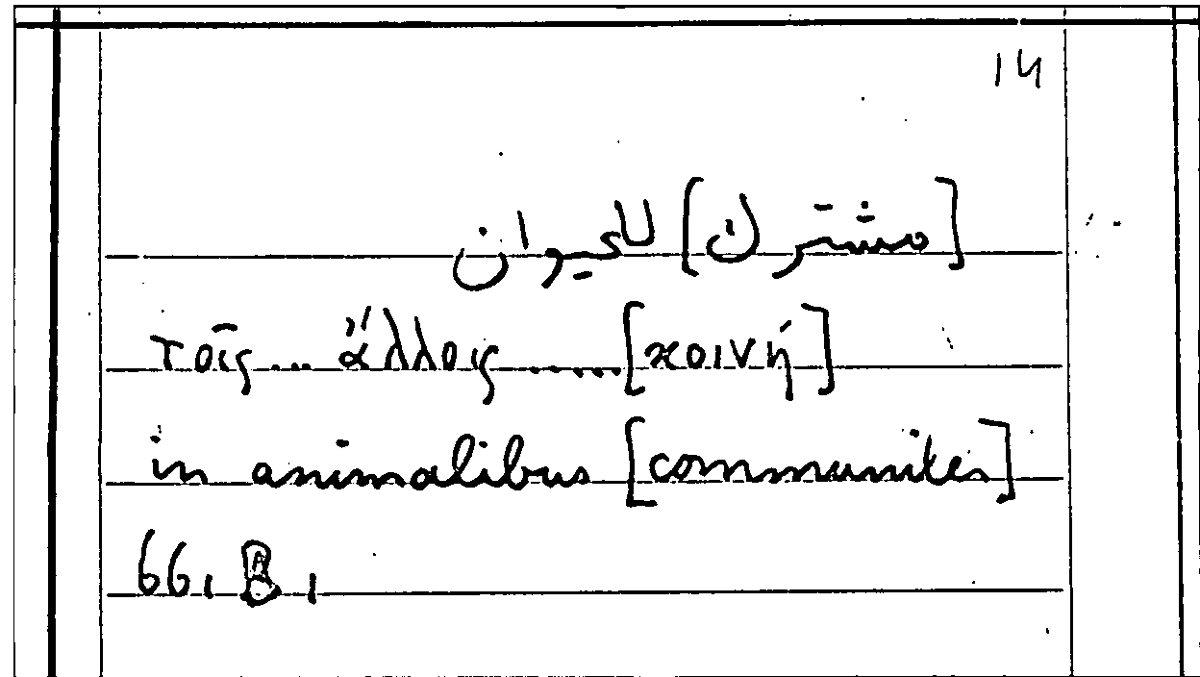 14
[مشترك] للحيوان
τοῖς ... ἄλλοις ...... [κοινή]
in animalibus [communiter]
66, B 1